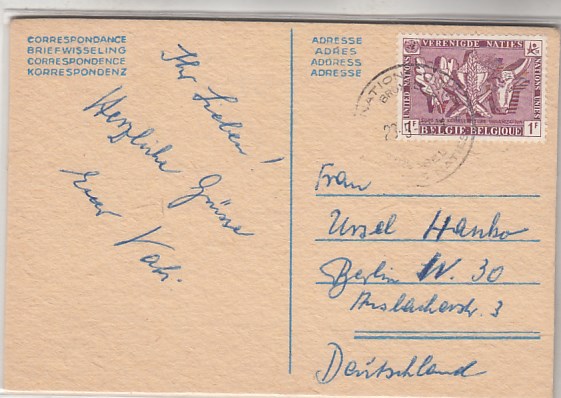 CORRESPONDANCE
BRIEFWISSELING
CORRESPONDENCE
KORRESPONDENZ
Ihr Lieben!
Herzliche Grüsse
Euer Vati.
ADRESSE
ADRES
ADDRESS
ADRESSE
VERENIGDE NATIES
UNITED NATIONS
NATIONS UNIES
1F
BELGIE-BELGIQUE
1F
Frau
Ursel Hanko
Berlin W. 30
Ansbacherstr. 3
Deutschland